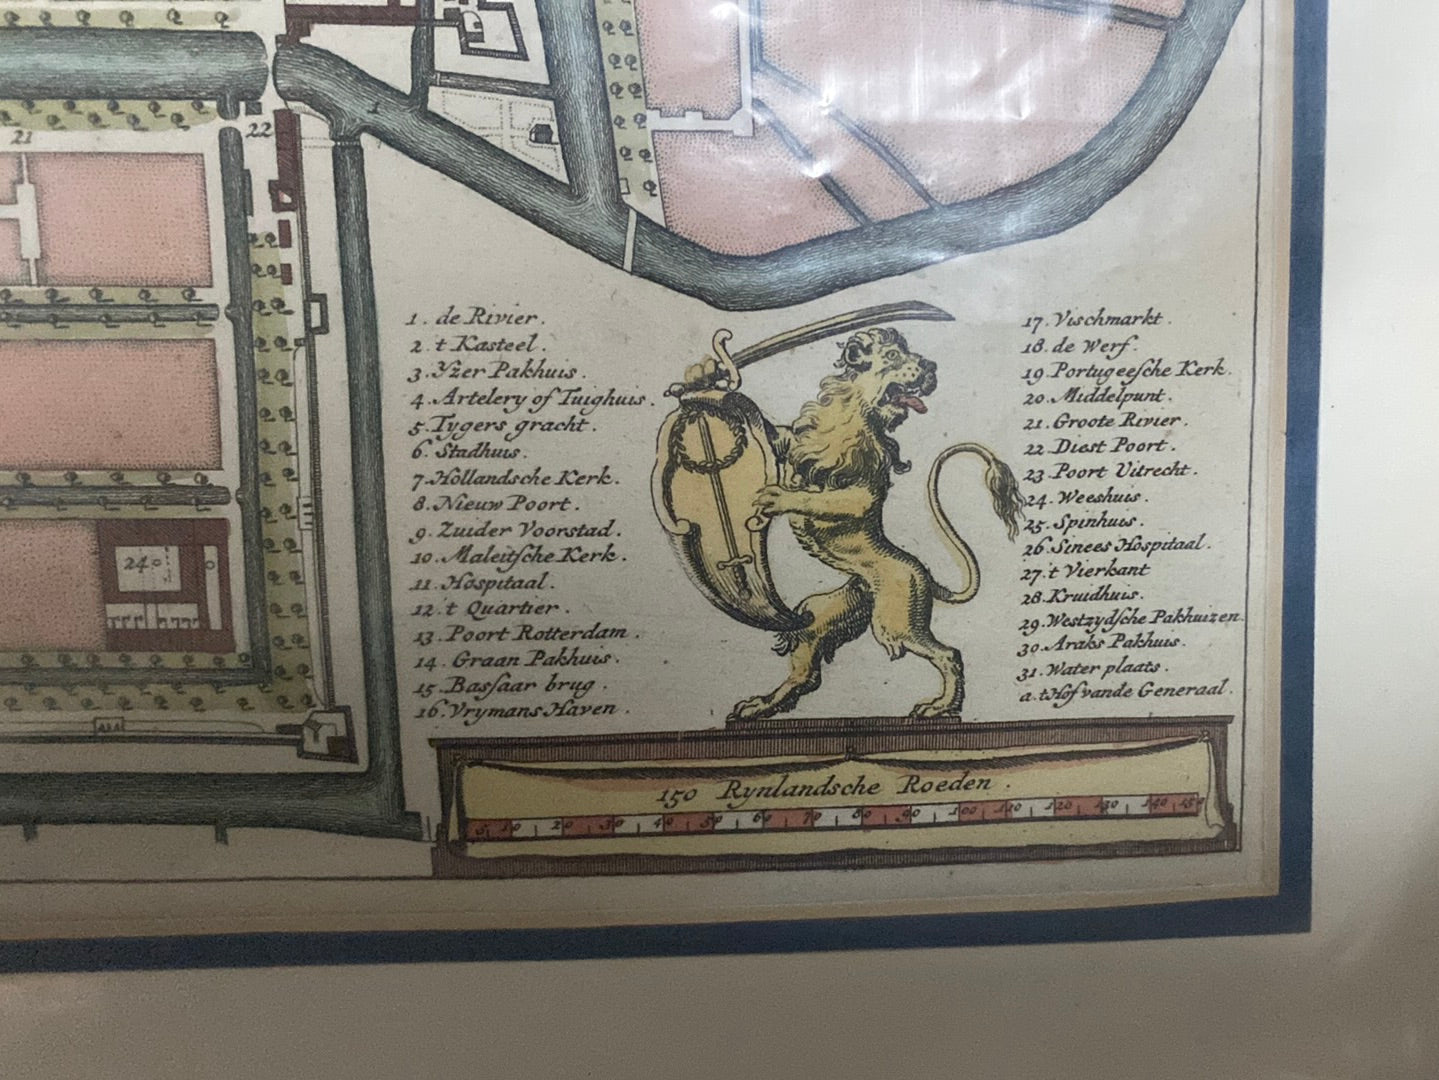 21
22
1
24
1. de Rivier.
2. t Kasteel.
3. Yzer Pakhuis.
4. Artelery of Tuighuis.
5. Tygers gracht.
6. Stadhuis.
7. Hollandsche Kerk.
8. Nieuw Poort.
9. Zuider Voorstad.
10. Maleitſche Kerk.
11. Hospitaal.
12. t Quartier.
13. Poort Rotterdam.
14. Graan Pakhuis.
15. Basſaar brug.
16. Vrymans Haven.
17. Vischmarkt.
18. de Werf.
19. Portugeeſche Kerk.
20. Middelpunt.
21. Groote Rivier.
22. Diest Poort.
23 Poort Uitrecht.
24. Weeshuis.
25. Spinhuis.
26. Sinees Hospitaal.
27. t Vierkant
28. Kruidhuis.
29. Westzydſche Pakhuizen.
30. Araks Pakhuis.
31. Water plaats.
a. t Hof vande Generaal.
150 Rynlandsche Roeden.
5 10 20 30 40 50 60 70 80 90 100 110 120 130 140 150